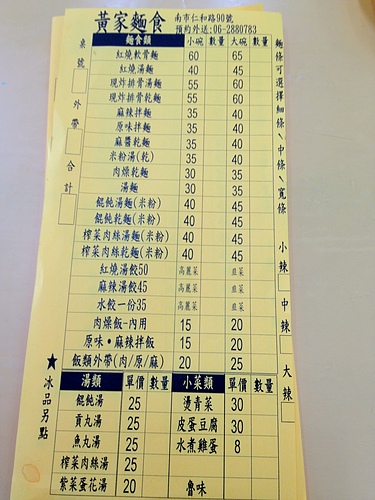 黃家麵食
南市仁和路90號
預約外送:06-2880783
桌號
外帶
合計
★冰品另點
麵食類 小碗 數量 大碗 數量
紅燒軟骨麵 60 65
紅燒湯麵 40 45
現炸排骨湯麵 55 60
現炸排骨乾麵 55 60
麻辣拌麵 35 40
原味拌麵 35 40
麻醬乾麵 35 40
米粉湯(乾) 35 40
肉燥乾麵 30 35
湯麵 30 35
餛飩湯麵(米粉) 40 45
餛飩乾麵(米粉) 40 45
榨菜肉絲湯麵(米粉) 40 45
榨菜肉絲乾麵(米粉) 40 45
紅燒湯餃50 高麗菜 韭菜
麻辣湯餃45 高麗菜 韭菜
水餃一份35 高麗菜 韭菜
肉燥飯-內用 15 20
原味·麻辣拌飯 15 20
飯類外帶(肉/原/麻) 20 25
湯類 單價 數量 小菜類 單價 數量
餛飩湯 25 燙青菜 30
貢丸湯 25 皮蛋豆腐 30
魚丸湯 25 水煮雞蛋 8
榨菜肉絲湯 25
紫菜蛋花湯 20 魯味
麵條可選擇細條、中條、寬條
小辣
中辣
大辣